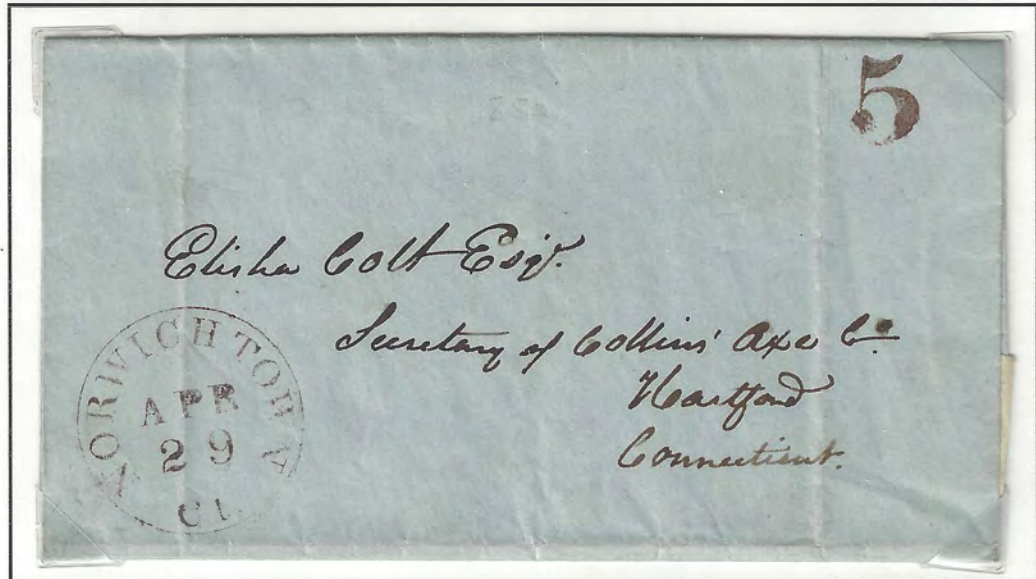 5
Elisha Colt Esqr.
Secretary of Collins' Axe Co
Hartford
Connecticut.
NORWICH TOWN
APR
29
Ct.